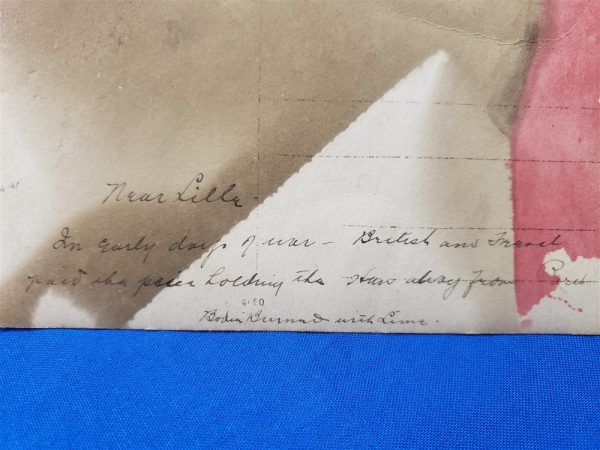 Near Lille -
In early days of war - British and French
paid the price holding the Huns away from Paris
4130
Bodies Burned with Lime.